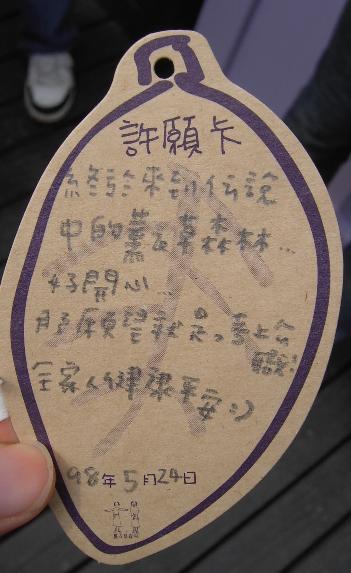 許願卡
終於來到伝說
中的薰衣草森林...
好開心...
那願望就是。馬上
職!
全家人健康平安:)
98年5月24日